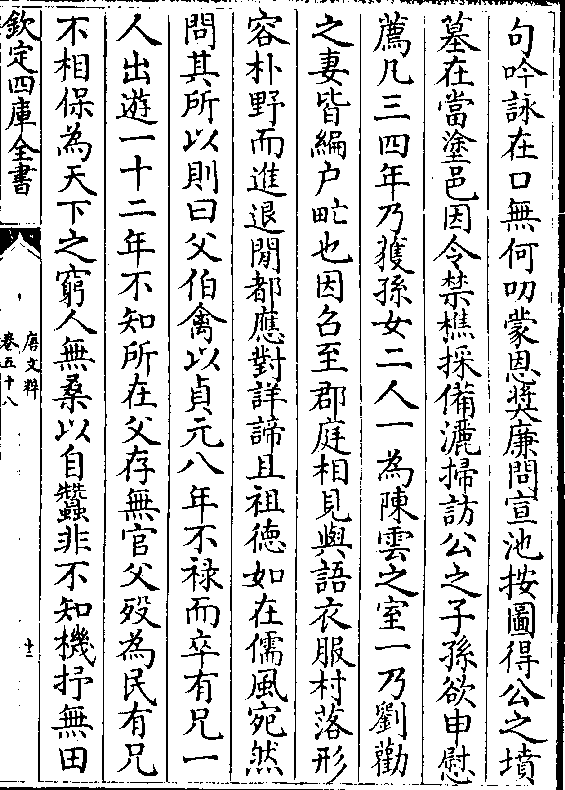 句吟詠在口無何叨蒙恩獎廉問宣池按圖得公之墳
墓在當塗邑因令禁樵採備灑掃訪公之子孫欲申慰
薦凡三四年乃獲孫女二人一為陳雲之室一乃劉勸
之妻皆編户甿也因召至郡庭相見與語衣服村落形
容朴野而進退閒都應對詳諦且祖德如在儒風宛然
問其所以則曰父伯禽以貞元八年不禄而卒有兄一
人出遊一十二年不知所在父存無官父殁為民有兄
不相保為天下之窮人無桑以自蠶非不知機抒無田
欽定四庫全書
唐文粹
卷五十八
十二